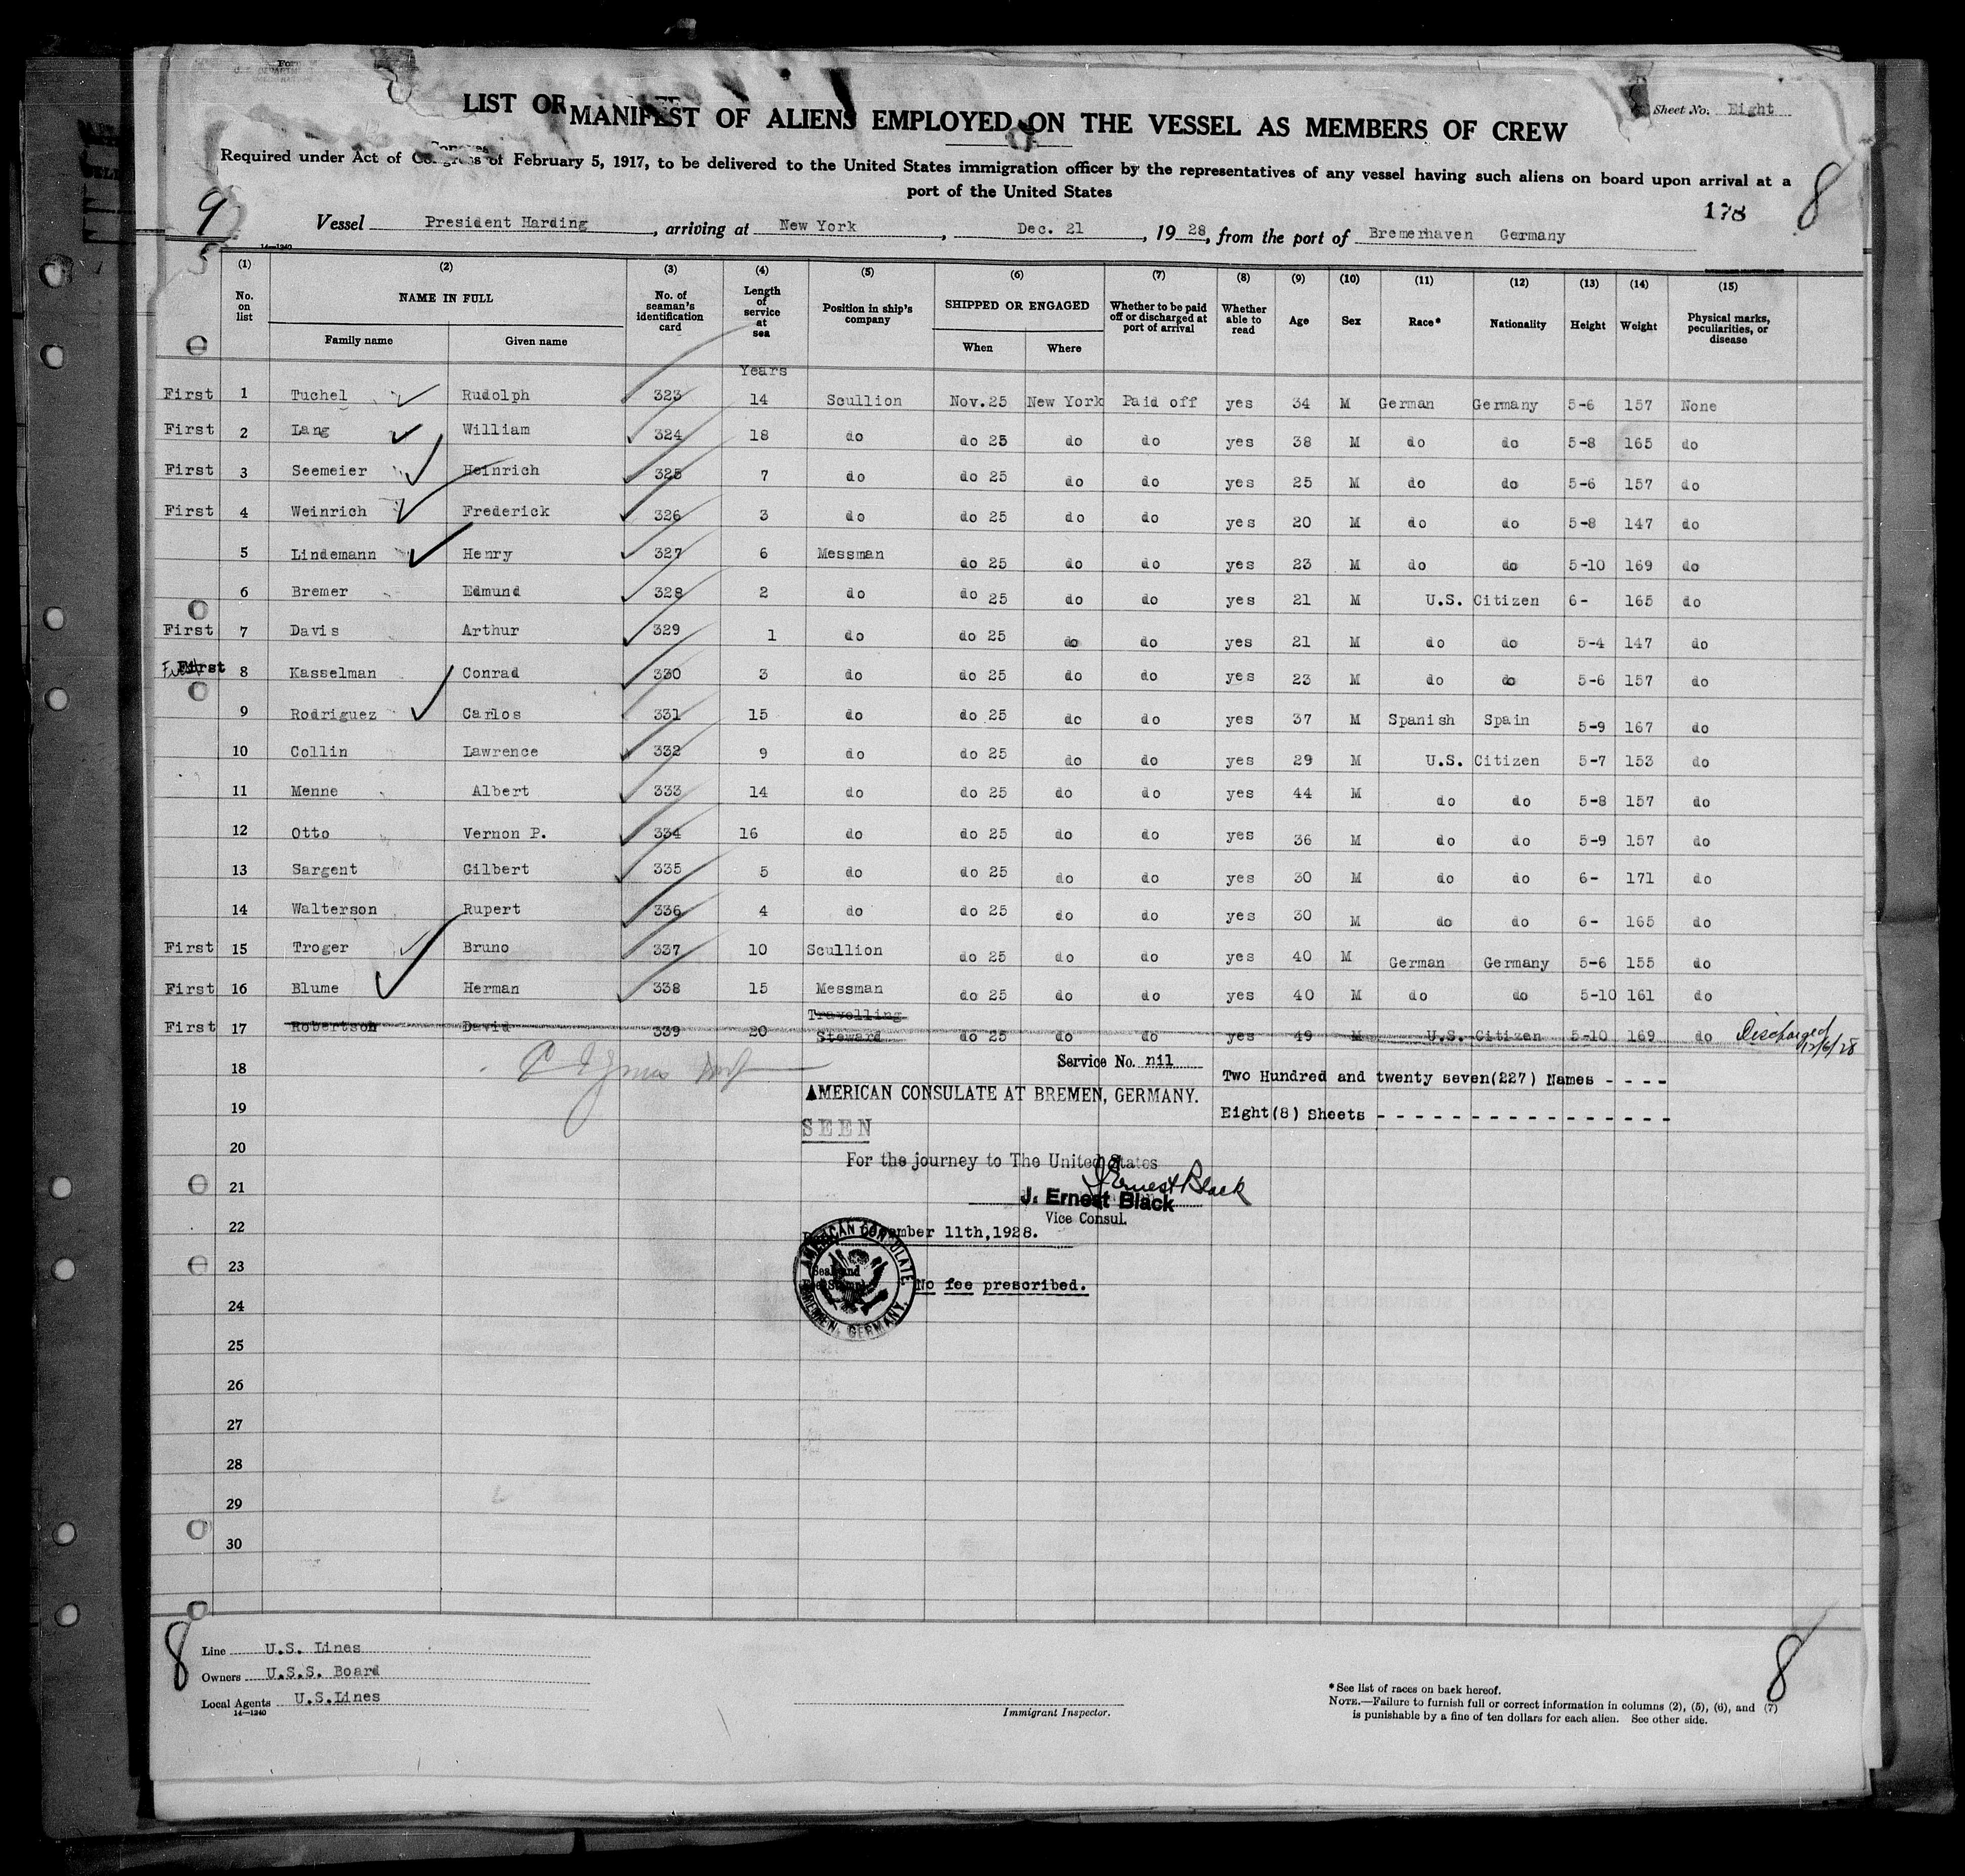 Form
LIST OR MANIFEST OF ALIENS EMPLOYED ON THE VESSEL AS MEMBERS OF CREW
Sheet No. Eight
Required under Act of Congress of February 5, 1917, to be delivered to the United States immigration officer by the representatives of any vessel having such aliens on board upon arrival at a
port of the United States
9 178 8
Vessel President Harding, arriving at New York, Dec. 21, 1928, from the port of Bremerhaven Germany
14—1240
5
(1) (2) (3) (4) (5) (6) (7) (8) (9) (10) (11) (12) (13) (14) (15)
No. on list NAME IN FULL Family name Given name No. of seaman's identification card Length of service at sea Position in ship's company SHIPPED OR ENGAGED When Where Whether to be paid off or discharged at port of arrival Whether able to read Age Sex Race* Nationality Height Weight Physical marks, peculiarities, or disease
Years
First 1 Tuchel Rudolph 323 14 Scullion Nov. 25 New York Paid off yes 34 M German Germany 5-6 157 None
First 2 Lang William 324 18 do do 25 do do yes 38 M do do 5-8 165 do
First 3 Seemeier Heinrich 325 7 do do 25 do do yes 25 M do do 5-6 157 do
First 4 Weinrich Frederick 326 3 do do 25 do do yes 20 M do do 5-8 147 do
5 Lindemann Henry 327 6 Messman do 25 do do yes 23 M do do 5-10 169 do
6 Bremer Edmund 328 2 do do 25 do do yes 21 M U.S. Citizen 6- 165 do
First 7 Davis Arthur 329 1 do do 25 do do yes 21 M do do 5-4 147 do
First First 8 Kasselman Conrad 330 3 do do 25 do do yes 23 M do do 5-6 157 do
9 Rodriguez Carlos 331 15 do do 25 do do yes 37 M Spanish Spain 5-9 167 do
10 Collin Lawrence 332 9 do do 25 do do yes 29 M U.S. Citizen 5-7 153 do
11 Menne Albert 333 14 do do 25 do do yes 44 M do do 5-8 157 do
12 Otto Vernon P. 334 16 do do 25 do do yes 36 M do do 5-9 157 do
13 Sargent Gilbert 335 5 do do 25 do do yes 30 M do do 6- 171 do
14 Walterson Rupert 336 4 do do 25 do do yes 30 M do do 6- 165 do
First 15 Troger Bruno 337 10 Scullion do 25 do do yes 40 M German Germany 5-6 155 do
First 16 Blume Herman 338 15 Messman do 25 do do yes 40 M do do 5-10 161 do
First 17 Robertson David 339 20 Travelling Steward do 25 do do yes 49 M U.S. Citizen 5-10 169 do Discharged 12/6/28
18 Service No. nil
Two Hundred and twenty seven(227) Names - - - -
19 AMERICAN CONSULATE AT BREMEN, GERMANY.
Eight(8) Sheets - - - - - - - - - - - - - - -
SEEN
20
For the journey to The United States
21 J Ernest Black
J. Ernest Black
Vice Consul.
22 December 11th,1928.
23 AMERICAN CONSULATE, BREMEN, GERMANY.
Seal and
Fee Stamp No fee prescribed.
24
25
26
27
28
29
30
8 8
Line U.S. Lines
Owners U.S.S. Board
Local Agents U.S.Lines
14—1240
Immigrant Inspector.
*See list of races on back hereof.
NOTE.—Failure to furnish full or correct information in columns (2), (5), (6), and (7)
is punishable by a fine of ten dollars for each alien. See other side.